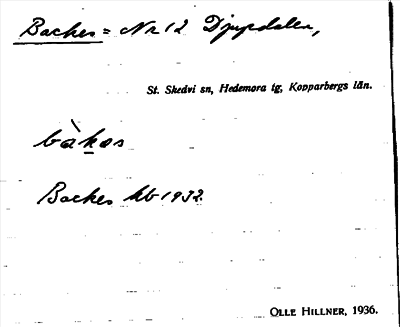 Backes = Nr 12 Djupdalen,
St. Skedvi sn, Hedemora tg, Kopparbergs län.
bàkas
Backes hb 1932.
OLLE HILLNER, 1936.